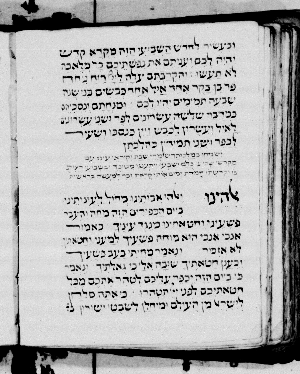 ובעשור לחדש השביעי הזה מקרא קדש
יהיה לכם ועניתם את נפשתיכם כל מלאכה
לא תעשו והקרבתם עולה ליי ריח ניחח
פר בן בקר אחד איל אחד כבשים בני שנה
שבעה תמימים יהיו לכם ומנחתם ונסכיהם
כמדבר שלשה עשרונים לפר ושני עשרונים
לאיל ועשרון לכבש ויין כנסכו ושעיר
לכפר ושני תמידין כהלכתן
אלהינו ואלהי אבותינו מחול לעונותינו
ביום הכפורים הזה מחה והעבר
פשעינו וחטאתינו מנגד עיניך כאמור
אנכי אנכי הוא מוחה פשעיך למעני וחטאתיך
לא אזכור ונאמר מחיתי כעב פשעיך
וכענן חטאתיך שובה אלי כי גאלתיך ונאמר
כי ביום הזה יכפר עליכם לטהר אתכם מכל
חטאתיכם לפני יי תטהרו כי אתה סלחן
לישראל ומחלן לשבטי ישורון